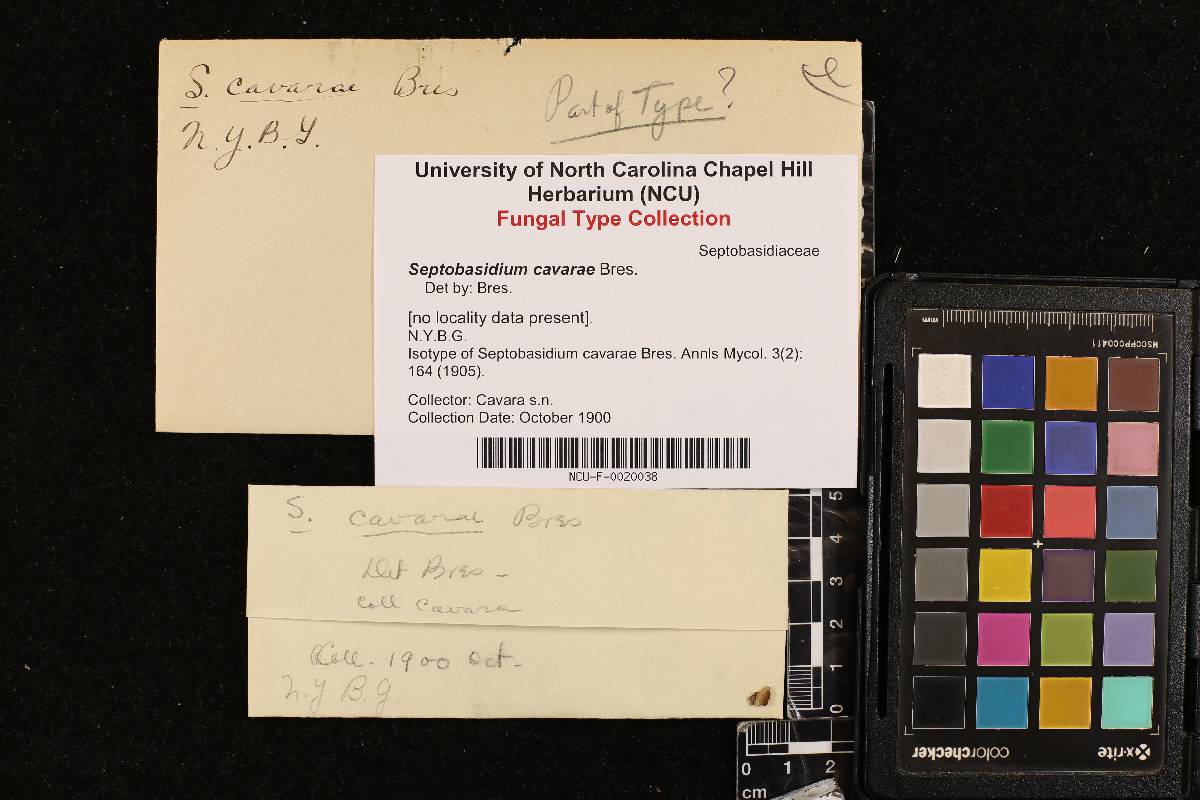 S. cavarae Bres
Part of Type?
N.Y.B.G.
University of North Carolina Chapel Hill
Herbarium (NCU)
Fungal Type Collection
Septobasidiaceae
Septobasidium cavarae Bres.
Det by: Bres.
[no locality data present].
N.Y.B.G.
Isotype of Septobasidium cavarae Bres. Annls Mycol. 3(2):
164 (1905).
Collector: Cavara s.n.
Collection Date: October 1900
NCU-F-0020038
S. cavarae Bres
Det Bres -
Coll Cavara
Coll. 1900 Oct-
N.Y B.G.
5
4
3
2
1
0
0 1 2
cm
mm
MSCCPPCC0411
colorchecker
x-rite